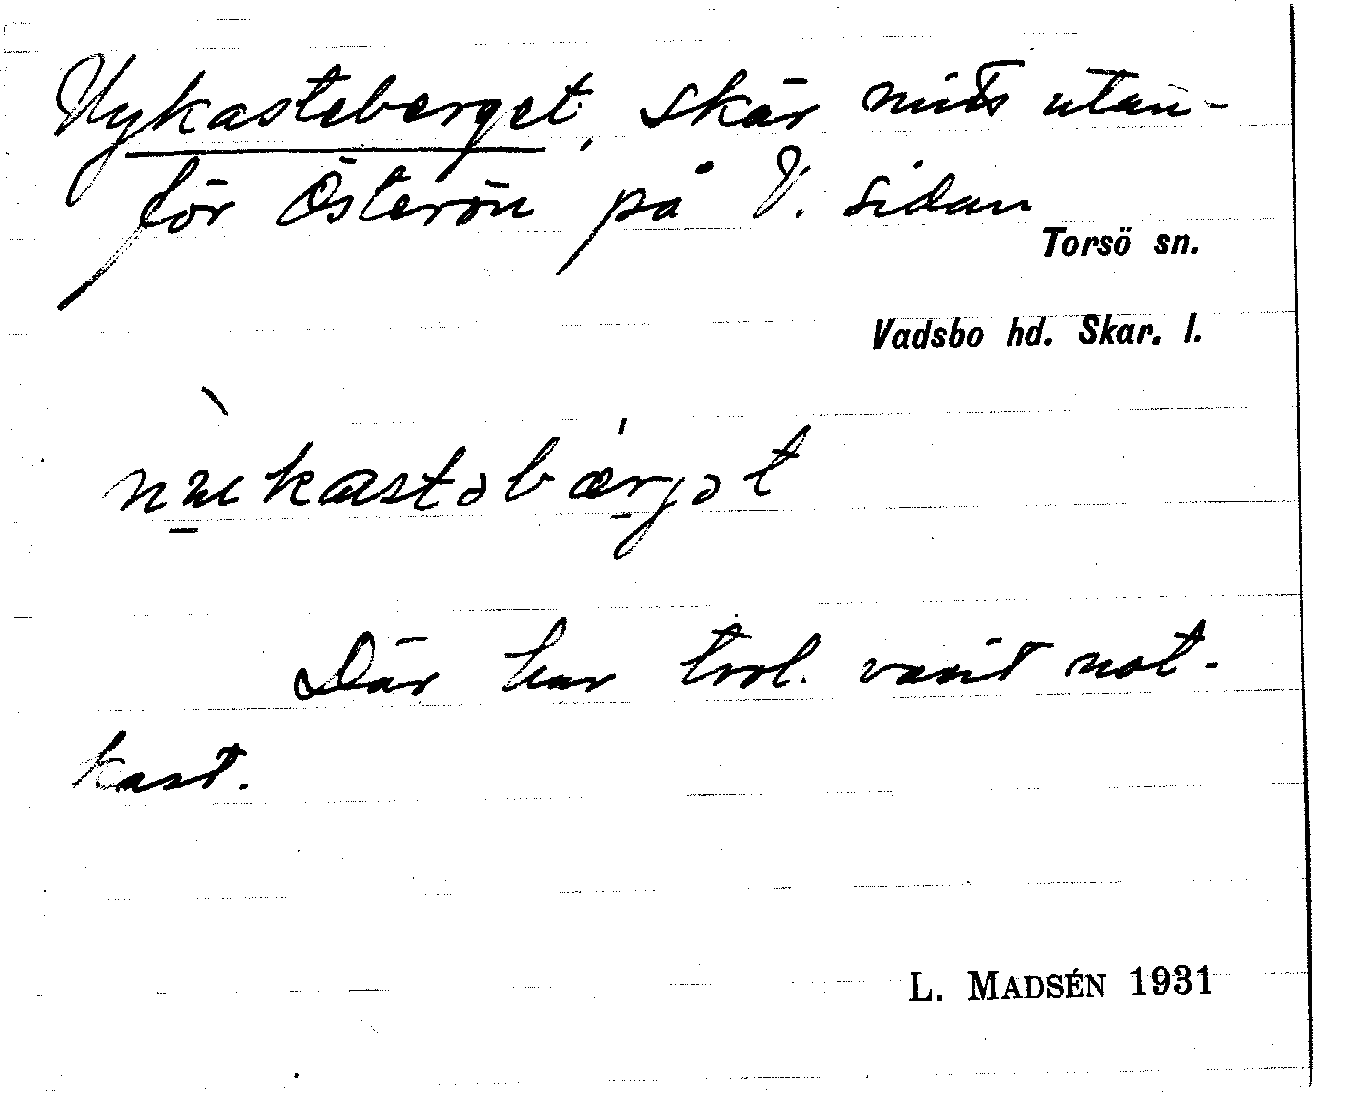 Nykasteberget, skär mitt utan-
för Österön på V. sidan
Torsö sn.
Vadsbo hd. Skar. l.
Där har trol. varit not-
kast.
L. MADSÉN 1931